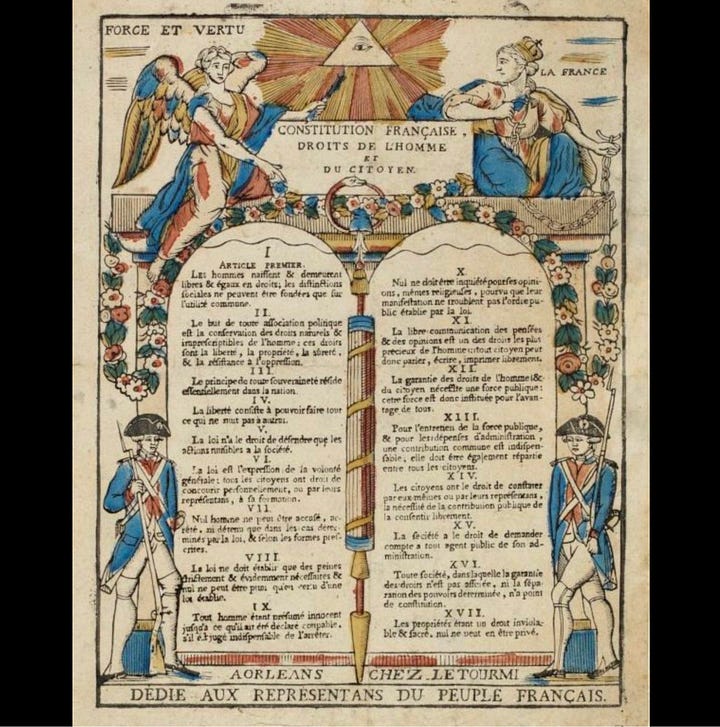 FORCE ET VERTU
LA FRANCE
CONSTITUTION FRANÇAISE,
DROITS DE L'HOMME
ET
DU CITOYEN.
I
ARTICLE PREMIER.
Les hommes naissent & demeurent
libres & égaux en droits; les distinctions
sociales ne peuvent être fondées que sur
l'utilité commune.
II.
Le but de toute association politique
est la conservation des droits naturels &
imprescriptibles de l'homme; ces droits
sont la liberté, la propriété, la sûreté,
& la résistance à l'oppression.
III.
Le principe de toute souveraineté réside
essentiellement dans la nation.
IV.
La liberté consiste à pouvoir faire tout
ce qui ne nuit pas à autrui.
V.
La loi n'a le droit de défendre que les
actions nuisibles a la société.
VI.
La loi est l'expression de la volonté
générale; tous les citoyens ont droit de
concourir personnellement, ou par leurs
représentans, à sa formation.
VII.
Nul homme ne peut être accusé, ar-
rêté, ni détenu que dans les cas déter-
minés par la loi, & selon les formes pres-
crites.
VIII.
La loi ne doit établir que des peines
strictement & évidemment nécessaires &
nul ne peut être puni qu'en vertu d'une
loi établie.
IX.
Tout homme étant présumé innocent
jusqu'a ce qu'il ait été déclaré coupable,
s'il est jugé indispensable de l'arrêter.
X.
Nul ne doit être inquiété pour ses opini-
ons, mêmes religieuses, pourvu que leur
manifestation ne troublent pas l'ordre pu-
blic établie par la loi.
XI.
La libre communication des pensées
& des opinions est un des droits les plus
précieux de l'homme: tout citoyen peut
donc parler, écrire, imprimer librement.
XII.
La garantie des droits de l'homme &
du citoyen nécessite une force publique:
cette force est donc instituée pour l'avan-
tage de tous.
XIII.
Pour l'entretien de la force publique,
& pour les dépenses d'administration,
une contribution commune est indispen-
sable; elle doit être également répartie
entre tous les citoyens.
XIV.
Les citoyens ont le droit de constater
par eux-mêmes ou par leurs représentans,
la nécessité de la contribution publique de
la consentir librement.
XV.
La société a le droit de demander
compte a tout agent public de son ad-
ministration.
XVI.
Toute société, dans laquelle la garantie
des droits n'est pas assurée, ni la sépa-
ration des pouvoirs déterminée, n'a point
de constitution.
XVII.
Les propriétés étant un droit inviola-
ble & sacré, nul ne veut en être privé.
A ORLEANS CHEZ LETOURMI
DÉDIE AUX REPRÉSENTANS DU PEUPLE FRANÇAIS.